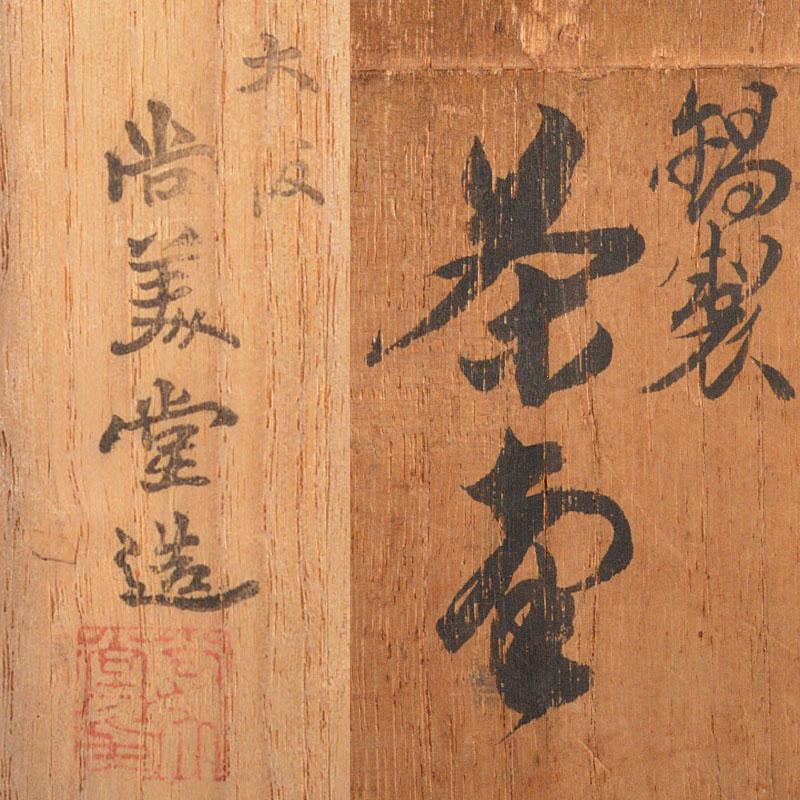 錫製
茶壷
大阪
尚美堂造